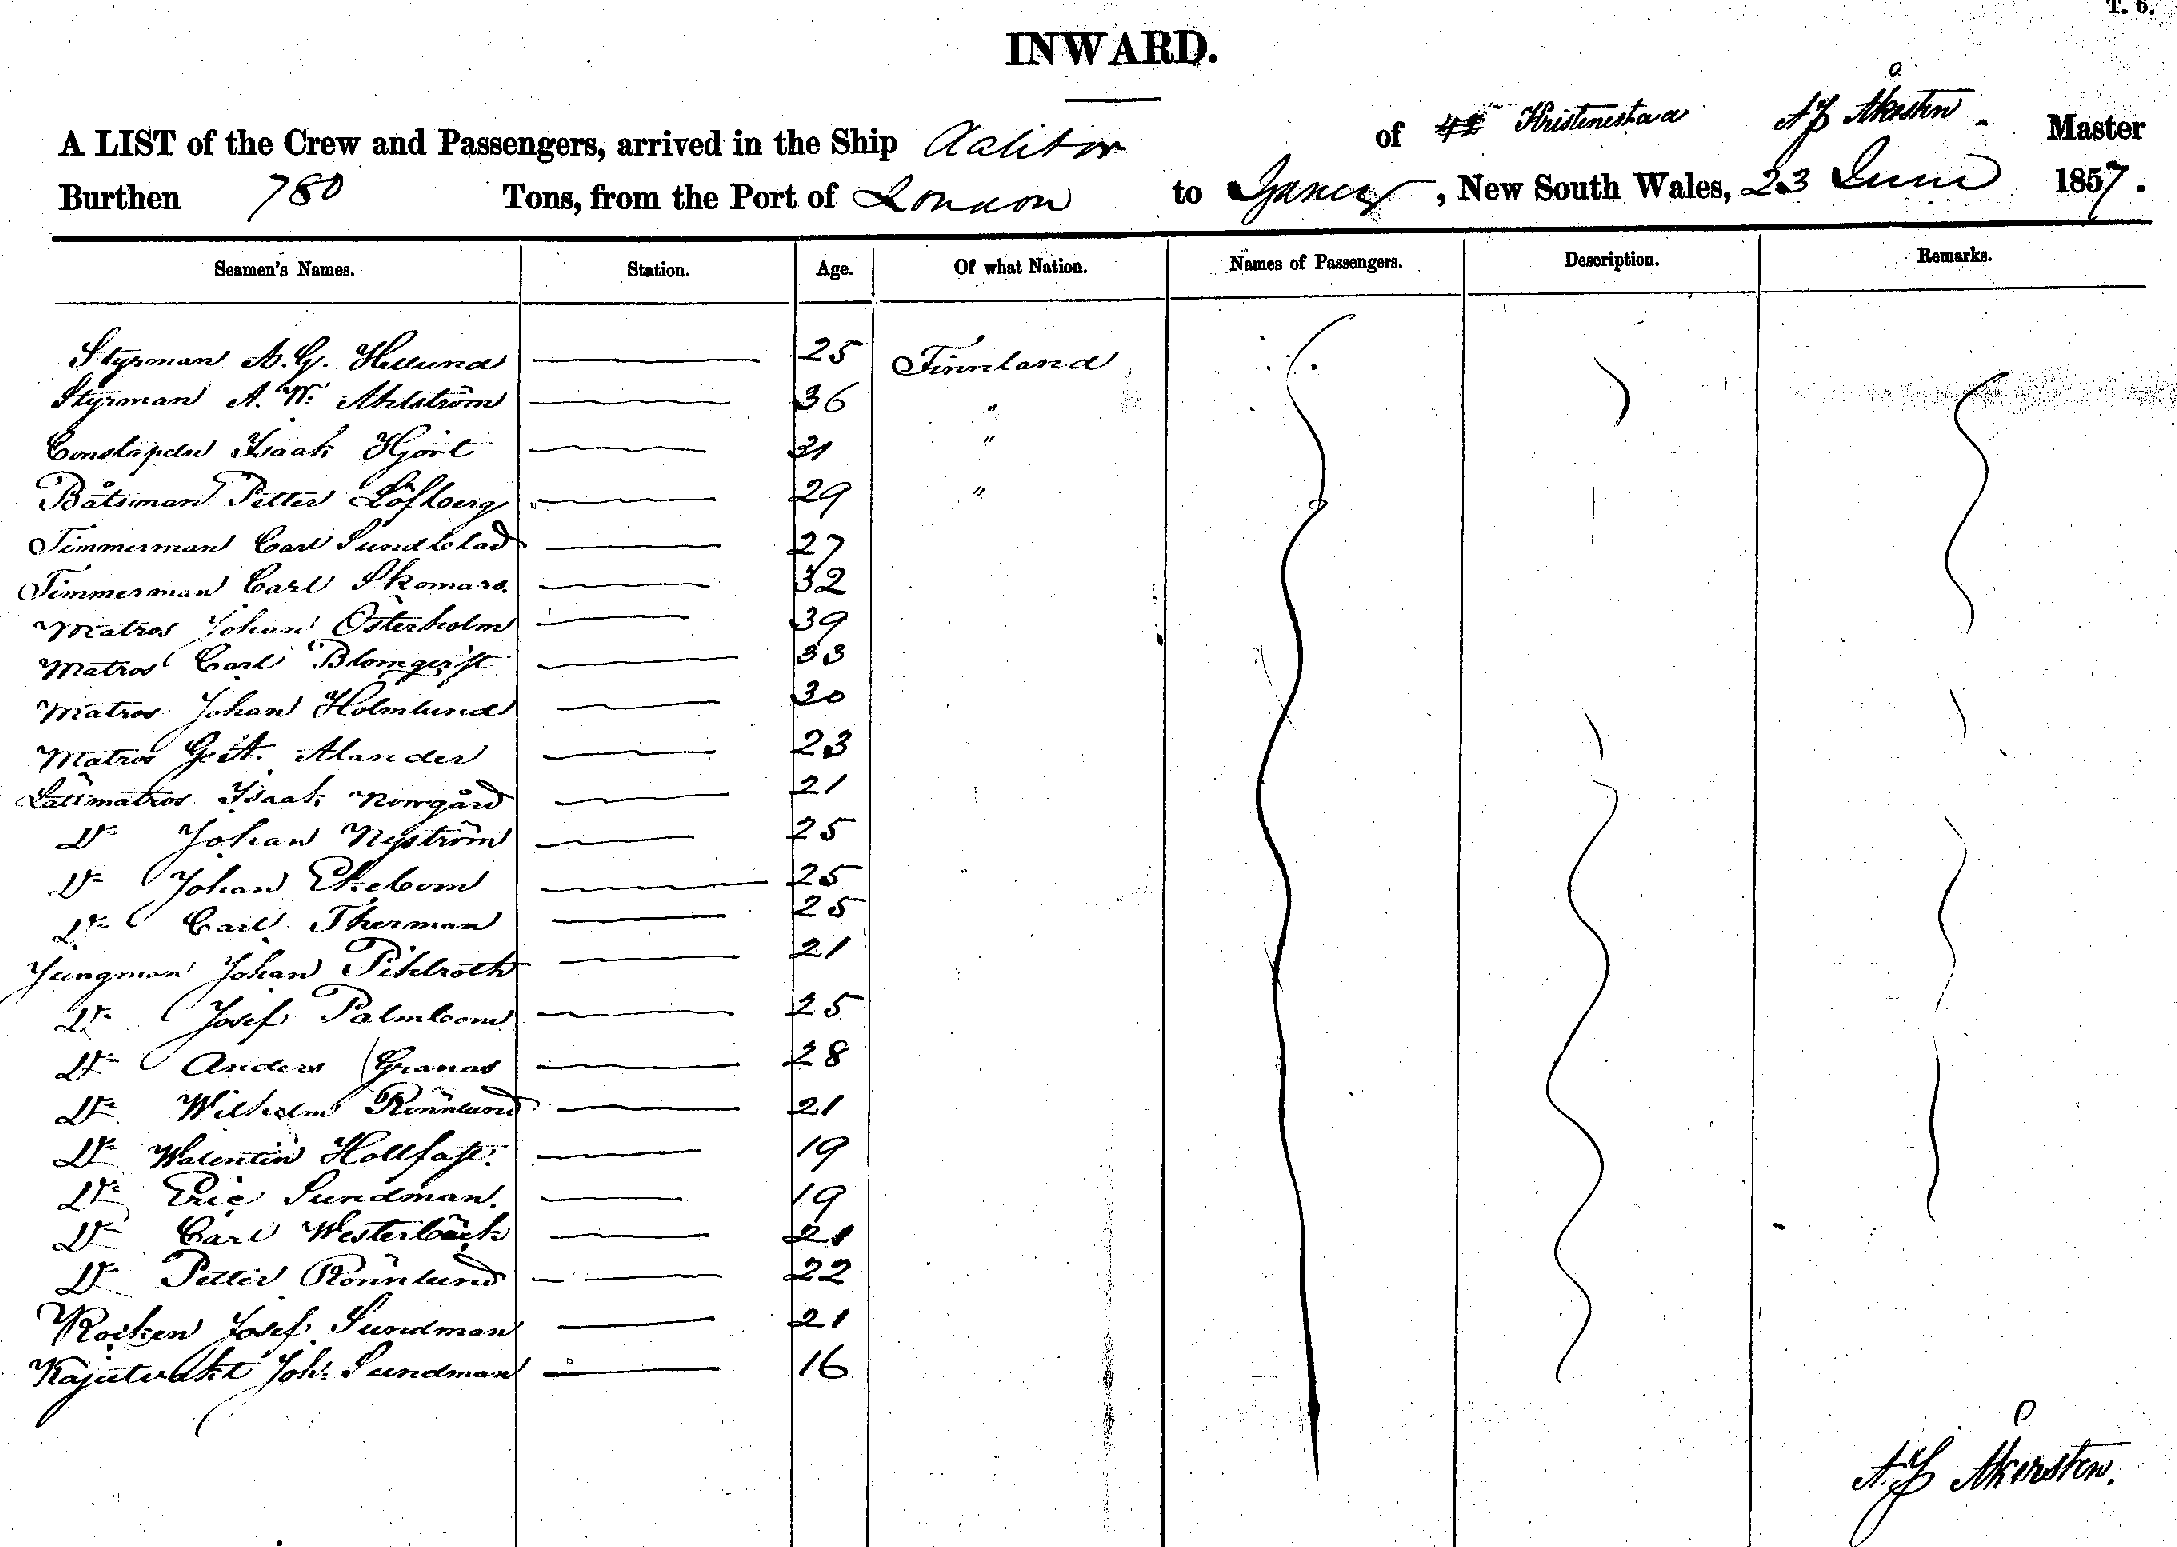 T. 6.
INWARD.
A LIST of the Crew and Passengers, arrived in the Ship of Kristinestad A J Åkersten Master
Burthen 780 Tons, from the Port of London to Sydney, New South Wales, 23 June 1857.
Seamen's Names. Station. Age. Of what Nation. Names of Passengers. Description. Remarks.
Styrman A. G. Hellund 25 Finnland
Styrman A. W. Ahlström 36 "
Constapeln Isaak Hjort 21 "
Båtsman Petter Löfberg 29 "
Timmerman Carl Sundblad 27
Timmerman Carl Skomars 32
Matros Johan Österholm 39
Matros Carl Blomqvist 33
Matros Johan Holmlund 30
Matros Gust. Alander 23
Lättmatros Isaak Norrgård 21
Do Johan Nyström 25
Do Johan Ekebom 25
Do Carl Therman 25
Jungman Johan Pihlroth 21
Do Josef Palmboom 25
Do Anders Granas 28
Do Wilhelm Rönnlund 21
Do Walentin Hollfast. 19
Do Eric Sundman. 19
Do Carl Westerbäck 21
Do Petter Rönnlund 22
Kocken Josef Sundman 21
Kajutvakt Joh: Sundman 16
A J Åkersten.